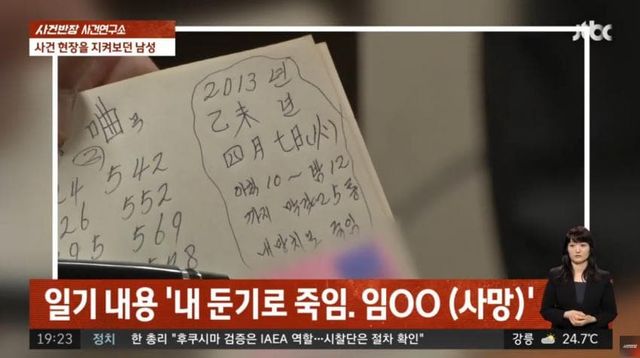 사건반장 사건연구소
사건 현장을 지켜보던 남성
jtbc
2013 년
乙未 년
四月 七日(火)
아침 10 ~ 밤 12
까지 막걸리 25 통
내 망치로 죽임
542
552
569
일기 내용 '내 둔기로 죽임. 임OO (사망)'
19:23 정치 한 총리 "후쿠시마 검증은 IAEA 역할…시찰단은 절차 확인" 강릉 24.7℃